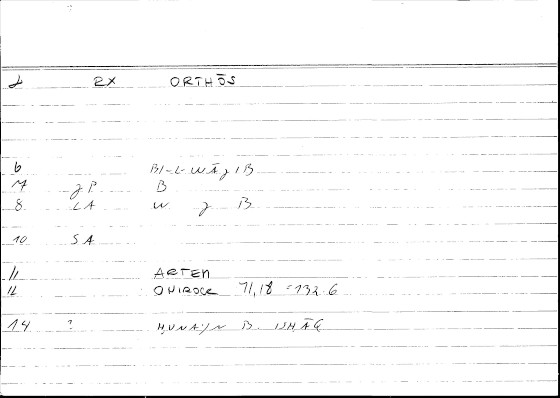 2 RX ORTHŌS
6 BI-L-WĀJIB
7 JP B
8 LA W J B
10 SA
11 ARTEM
12 ONIROCR 71,18 = 132.6
14 ? ḤUNAYN B. ISḤĀQ